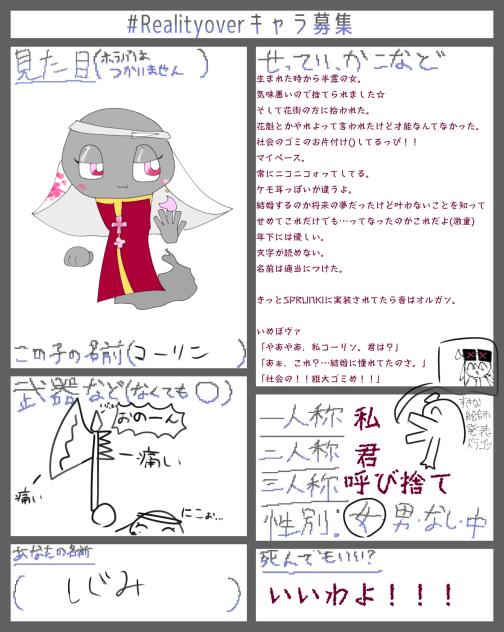 #Realityoverキャラ募集
見た目(ホラバハは
つかいません)
この子の名前(コーリン)
せってい、かこなど
生まれた時から半霊の女。
気味悪いので捨てられました☆
そして花街の方に拾われた。
花魁とかやれよって言われたけど才能なんてなかった。
社会のゴミのお片付け()してるっぴ！！
マイペース。
常にニコニコォってしてる。
ケモ耳っぽいが違うよ。
結婚するのか将来の夢だったけど叶わないことを知って
せめてこれだけでも…ってなったのかこれだよ(激重)
年下には優しい。
文字が読めない。
名前は適当につけた。
きっとSPRUNKIに実装されてたら音はオルガン。
いめぼヴァ
「やあやあ、私コーリン。君は？」
「あぁ、これ？…結婚に憧れてたのさ。」
「社会の！！粗大ゴミめ！！」
武器など(なくても○)
おのーん
痛い
痛い
にこぉ…
一人称 私
二人称 君
三人称 呼び捨て
性別：女 男・なし・中
すきな
絵師
発表
ドラゴン
あなたの名前
(しじみ)
死んでもいい？
いいわよ！！！